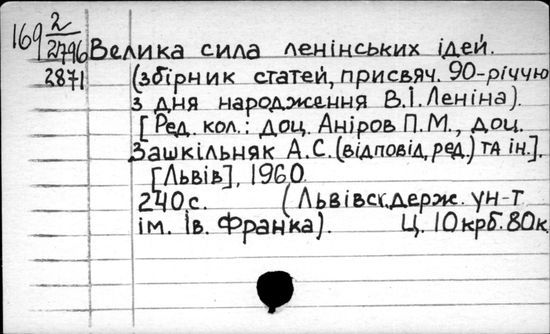 169 2/2796 Велика сила ленінських ідей.
2871 (збірник статей, присвяч. 90-річчю
з дня народження В.І. Леніна).
[Ред. кол.: доц. Аніров П.М., доц.
Зашкільняк А.С. (відповід. ред.) та ін.].
[Львів], 1960.
240 с. (Львівск. держ. ун-т
ім. Ів. Франка). Ц. 10 крб. 80 к.